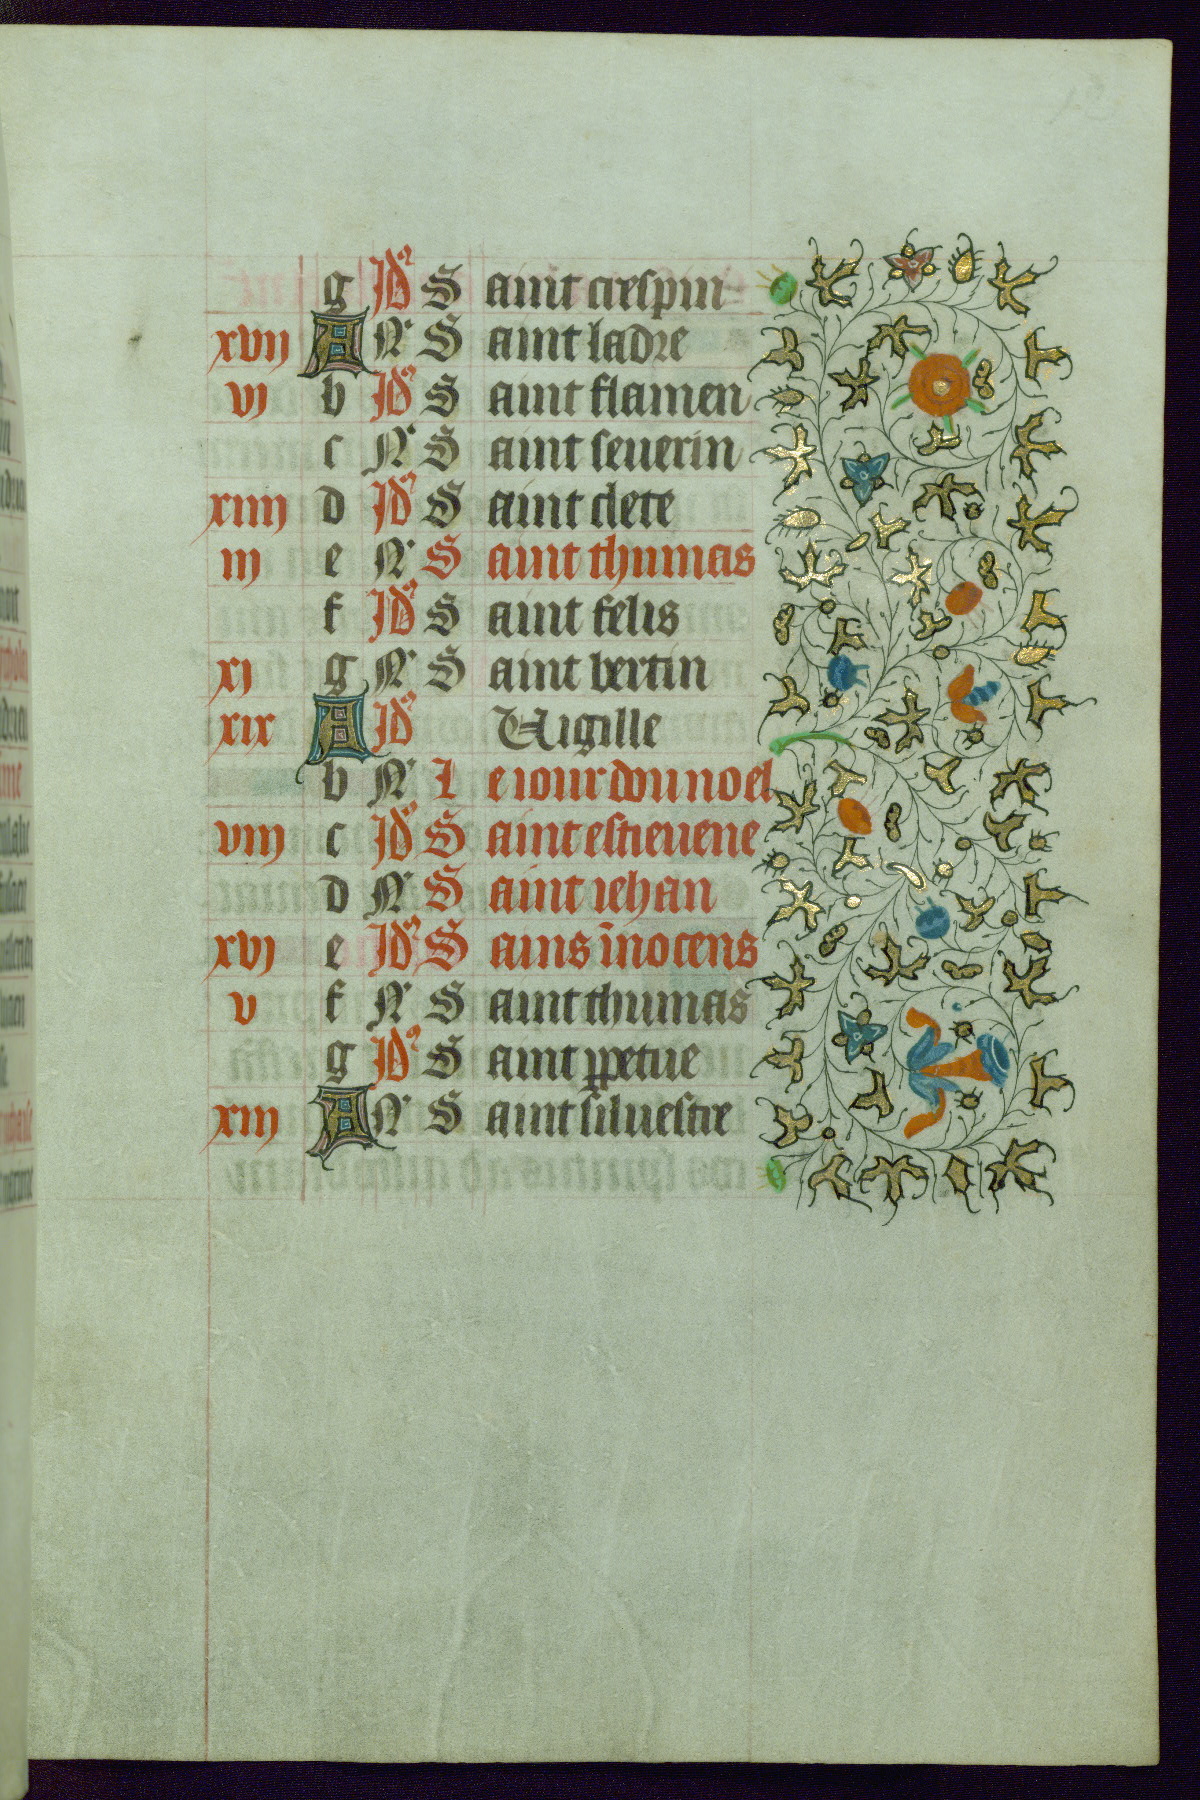 g Id S aint crespin
xvij A N S aint ladre
vj b Id S aint flamen
c N S aint seuerin
xiiij d Id S aint clete
iij e N S aint thumas
f Id S aint felis
xj g N S aint bertin
xix A Id Uigille
b N L e iour dou noel
viij c Id S aint estieuene
d N S aint iehan
xvj e Id S ains īnocens
v f N S aint thumas
g Id S aint ꝑpetue
xiij A N S aint siluestre